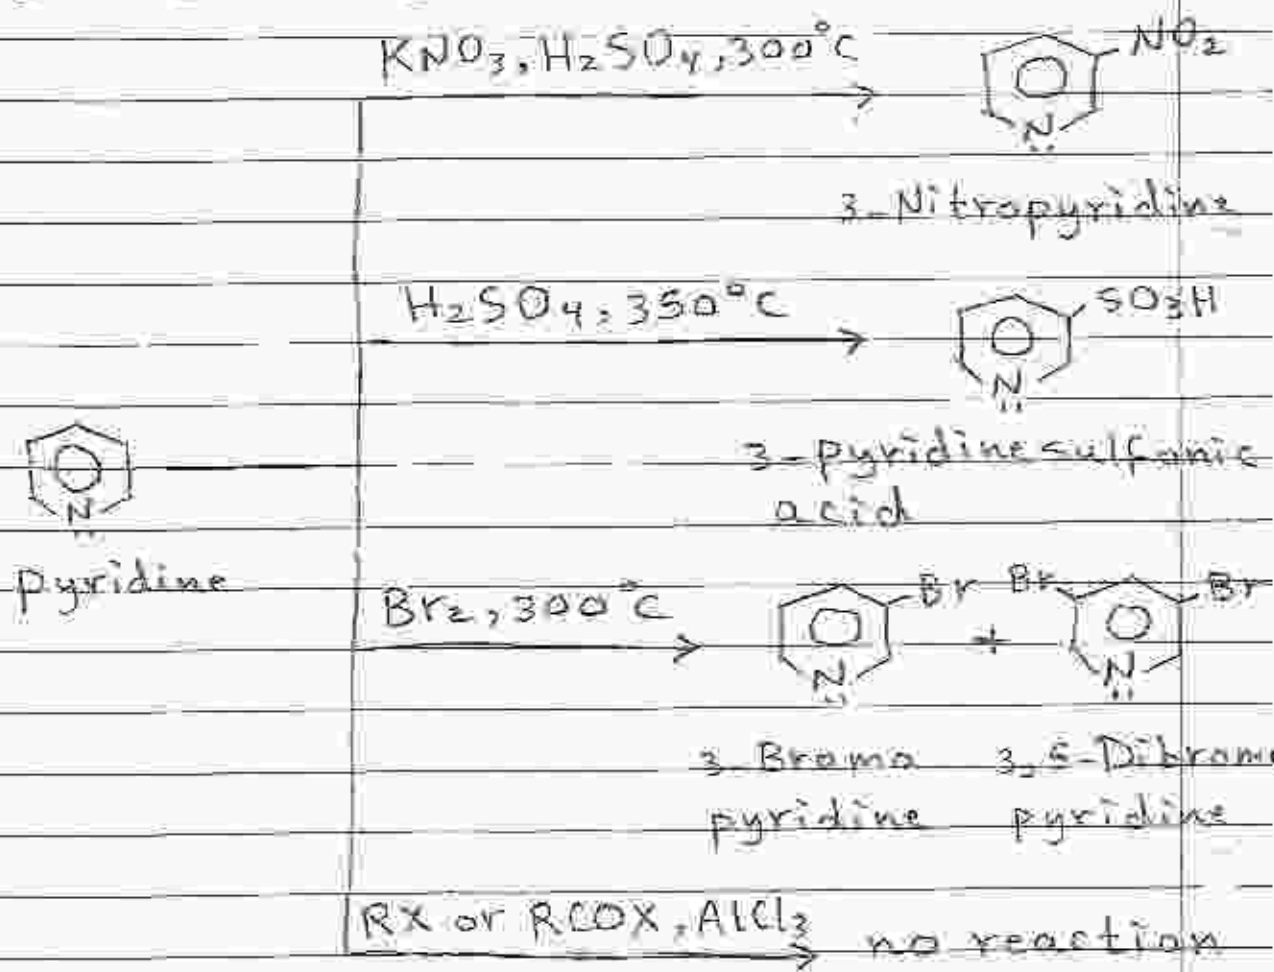 KNO₃, H₂SO₄, 300°C
NO₂
N
3-Nitropyridine
H₂SO₄, 350°C
SO₃H
N
3-pyridinesulfonic
acid
N
pyridine
Br₂, 300°C
Br + Br Br
N N
3-Bromo 3,5-Dibromo
pyridine pyridine
RX or RCOX, AlCl₃ no reaction